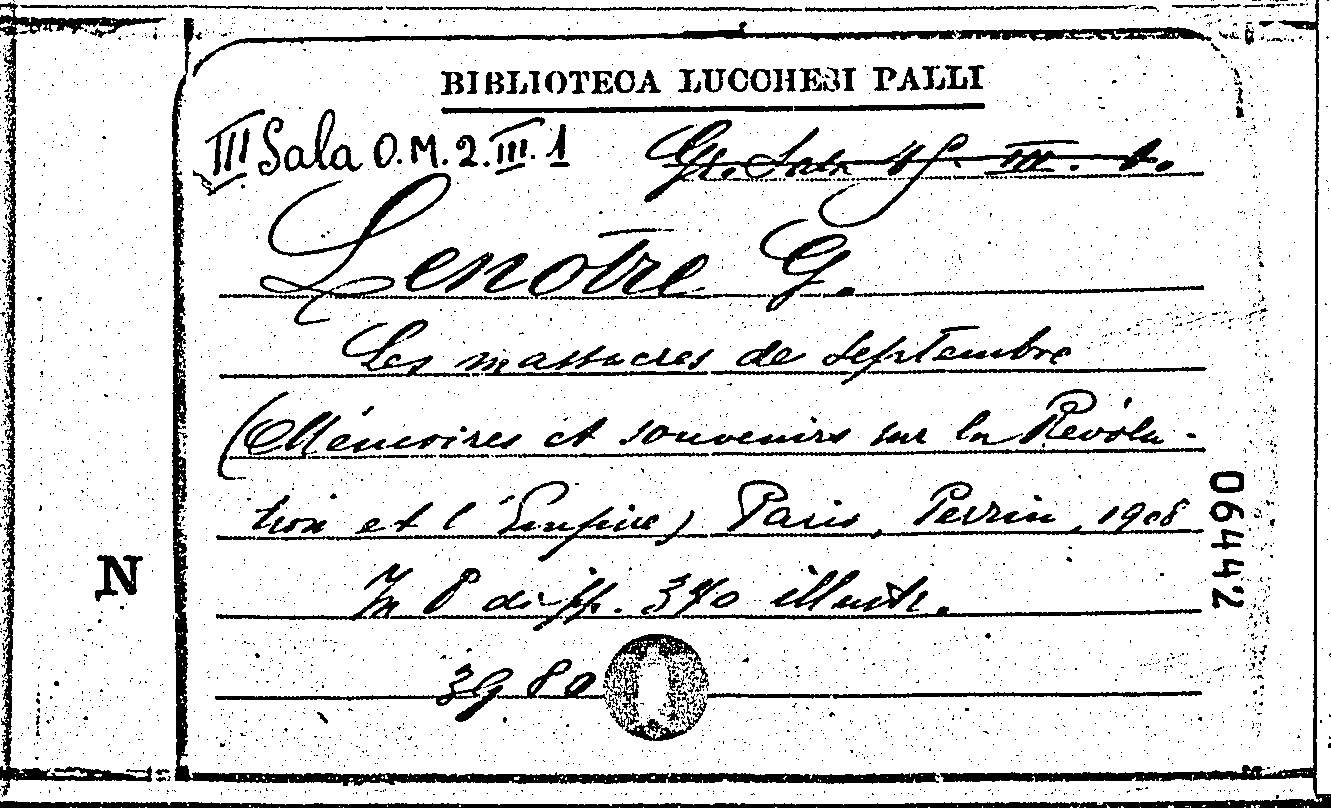 BIBLIOTECA LUCCHESI PALLI
III Sala O.M.2.III.1 Gr. Sala 45. III. 8.
Lenôtre G.
Les massacres de septembre
(Mémoires et souvenirs sur la Révolu-
tion et l'Empire) Paris, Perrin, 1908
In 8 di pp. 340 illustr.
N
3980
06442